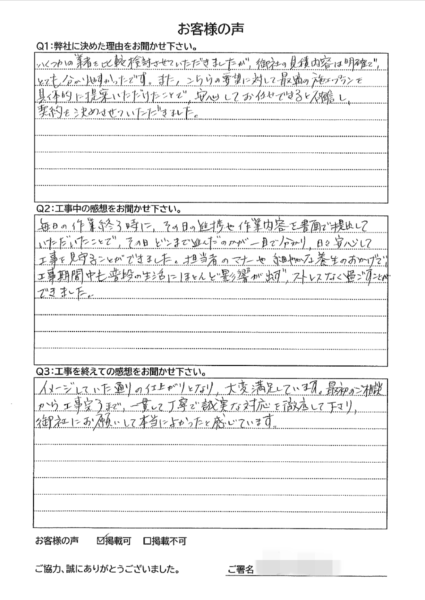 お客様の声
Q1:弊社に決めた理由をお聞かせ下さい。
いくつかの業者と比較検討させていただきましたが、御社の見積内容は明確で、
とても分かりやすかったです。また、こちらの要望に対して最適なプランを
具体的に提案いただけたことで、安心してお任せできると信頼し、
契約を決めさせていただきました。
Q2:工事中の感想をお聞かせ下さい。
毎日の作業終了時に、その日の進捗や作業内容を書面で提出して
いただいたことで、その日どこまで進んだのかが一目で分かり、日々安心して
工事を見守ることができました。担当者のマナーや細やかな養生のおかげで、
工事期間中も普段の生活にほとんど影響が出ず、ストレスなく過ごすことが
できました。
Q3:工事を終えての感想をお聞かせ下さい。
イメージしていた通りの仕上がりとなり、大変満足しています。最初のご相談
から工事完了まで、一貫して丁寧で誠実な対応を徹底して下さり、
御社にお願いして本当によかったと感じています。
お客様の声 ☑掲載可 ☐掲載不可
ご協力、誠にありがとうございました。 ご署名